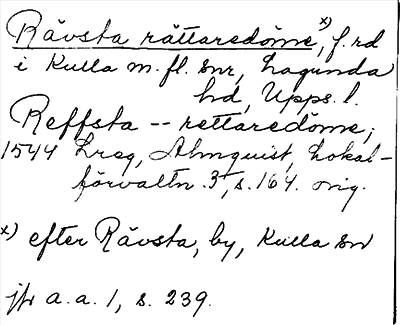 Rävsta rättaredöme x), f. rd
i Kulla m. fl. snr, Lagunda
hd, Upps. l.
Reffsta -- rettaredöme,
1544 Lreg, Almquist, Lokal-
förvaltn. 3, s. 164. orig.
x) efter Rävsta, by, Kulla sn
jfr a. a. 1, s. 239.